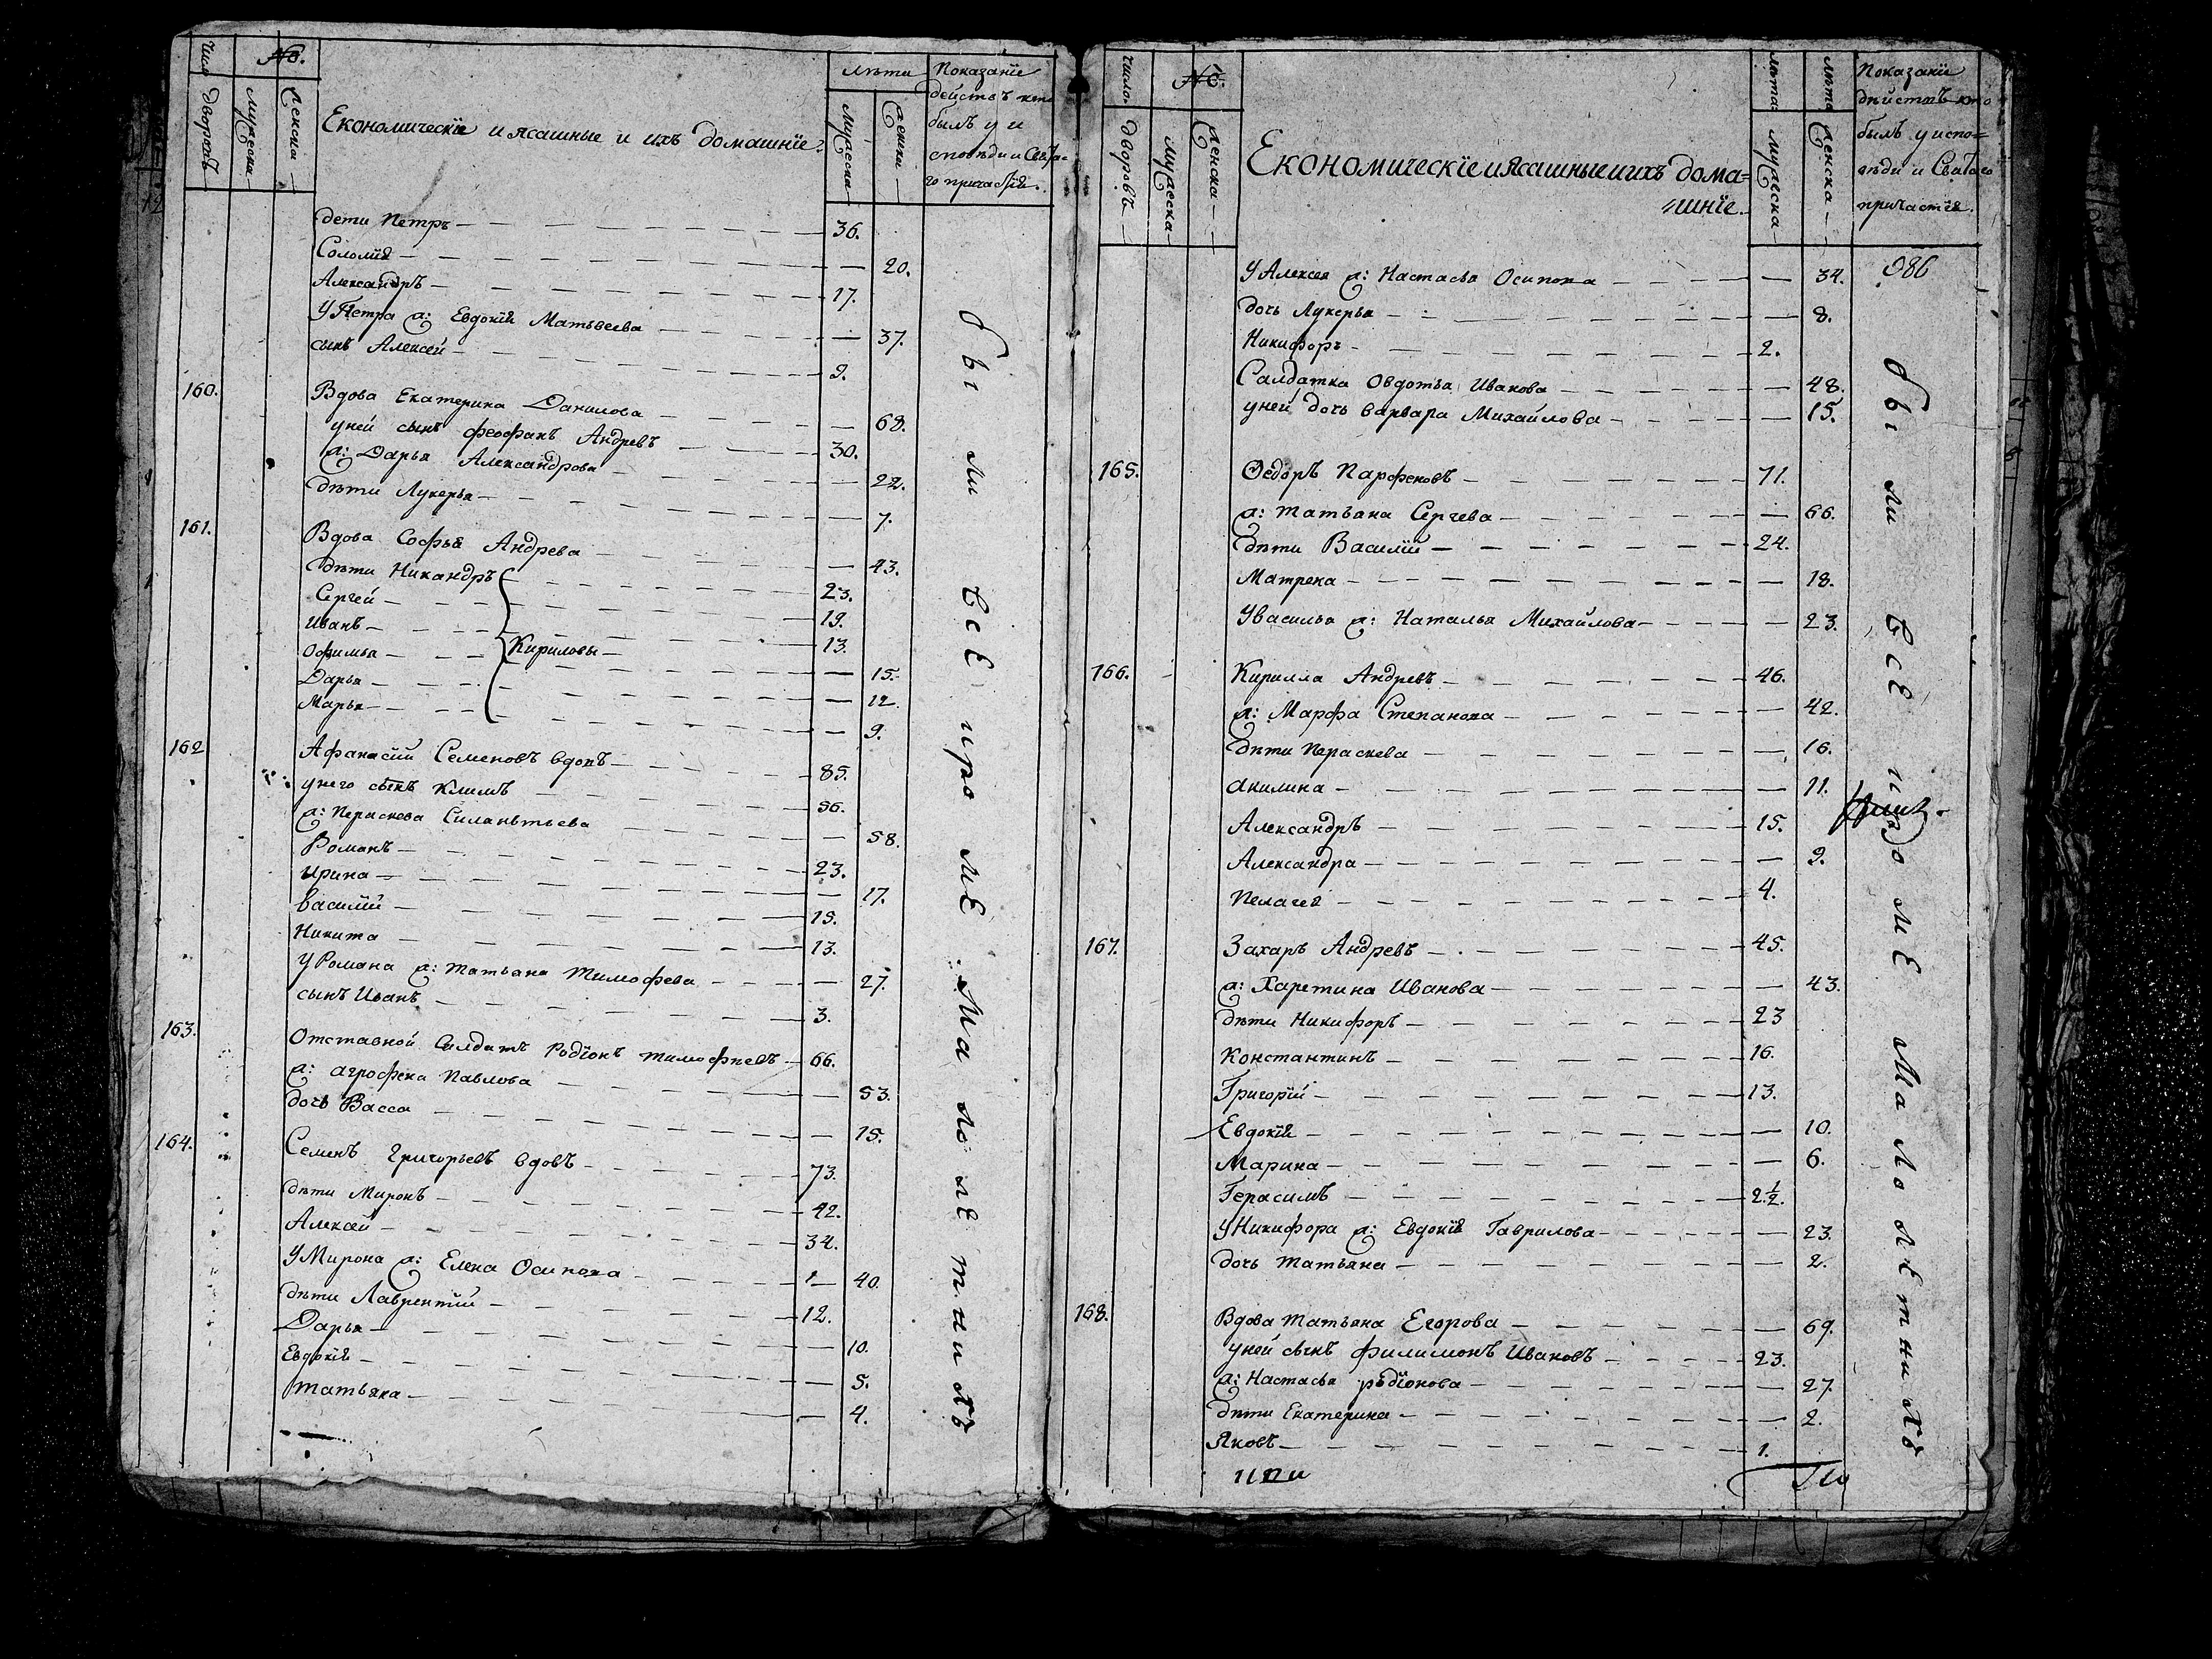 Число дворовъ
№.
мужеска
женска
Економическїе и ясашные и ихъ домашнїе
лѣти
мужеска
женски
Показанїе
действъ кто
былъ у и
споведи и Свята-
го причастїя.
дети Петръ — 36.
Соломїя — 20.
Александръ — 17.
У Петра ж: Евдокїя Матвеева — 37.
сынъ Алексей — 9.
160. Вдова Екатерина Данилова — 68.
у ней сынъ феофанъ Андревъ — 30.
ж: Дарья Александрова — 22.
дѣти Лукерья — 7.
161. Вдова Софья Андрева — 43.
дѣти Никандръ — 23.
Сергей — 19.
Иванъ — 13.
Офимья — Кириловы — 15.
Дарья — 12.
Марья — 9.
162 Афанасїй Семеновъ вдовъ — 85.
у него сынъ Климъ — 56.
ж: Пераскева Силантьева — 58.
Романъ — 23.
Ирина — 17.
Василїй — 15.
Никита — 13.
У Романа ж: Татьяна Тимофева — 27.
сынъ Иванъ — 3.
163. Отставной Салдатъ Родїонъ Тимофеевъ — 66.
ж: Агрофена Павлова — 53.
дочь Васса — 15.
164. Семенъ Григорьевъ вдовъ — 73.
дѣти Миронъ — 42.
Алексей — 34.
У Мирона ж: Елена Осипова — 40.
дѣти Лаврентїй — 12.
Дарья — 10.
Евдокїя — 5.
Татьяна — 4.
были все кроме малолетнихъ
Число дворовъ
№:
мужеска
женска
Економическїе и ясашные и ихъ дома=
=шнїе.
лѣта: мужеска
лѣта женска
Показанїе
действъ кто
былъ у испо=
веди и Святаго
причастїя.
986
У Алексея ж: Настасья Осипова — 34.
дочь Лукерья — 8.
Никифоръ — 2.
Салдатка Овдотья Иванова — 48.
у ней дочь Варвара Михайлова — 15.
165. Федоръ Парфеновъ — 71.
ж: Татьяна Сергева — 66.
дѣти Василїй — 24.
Матрена — 18.
У Василья ж: Наталья Михайлова — 23.
166. Кирилла Андревъ — 46.
ж: Марфа Степанова — 42.
дѣти Пераскева — 16.
Акилина — 11.
Александръ — 15.
Александра — 9.
Пелагея — 4.
167. Захаръ Андревъ — 45.
ж: Харетина Иванова — 43.
дѣти Никифоръ — 23
Константинъ — 16.
Григорїй — 13.
Евдокїя — 10.
Марина — 6.
Герасимъ — 2.½.
У Никифора ж: Евдокїя Гаврилова — 23.
дочь Татьяна — 2.
168. Вдова Татьяна Егорова — 69.
у ней сынъ филимонъ Ивановъ — 23.
ж: Настасья родїонова — 27.
дѣти Екатерина — 2.
Яковъ — 1.
были все кроме малолетнихъ